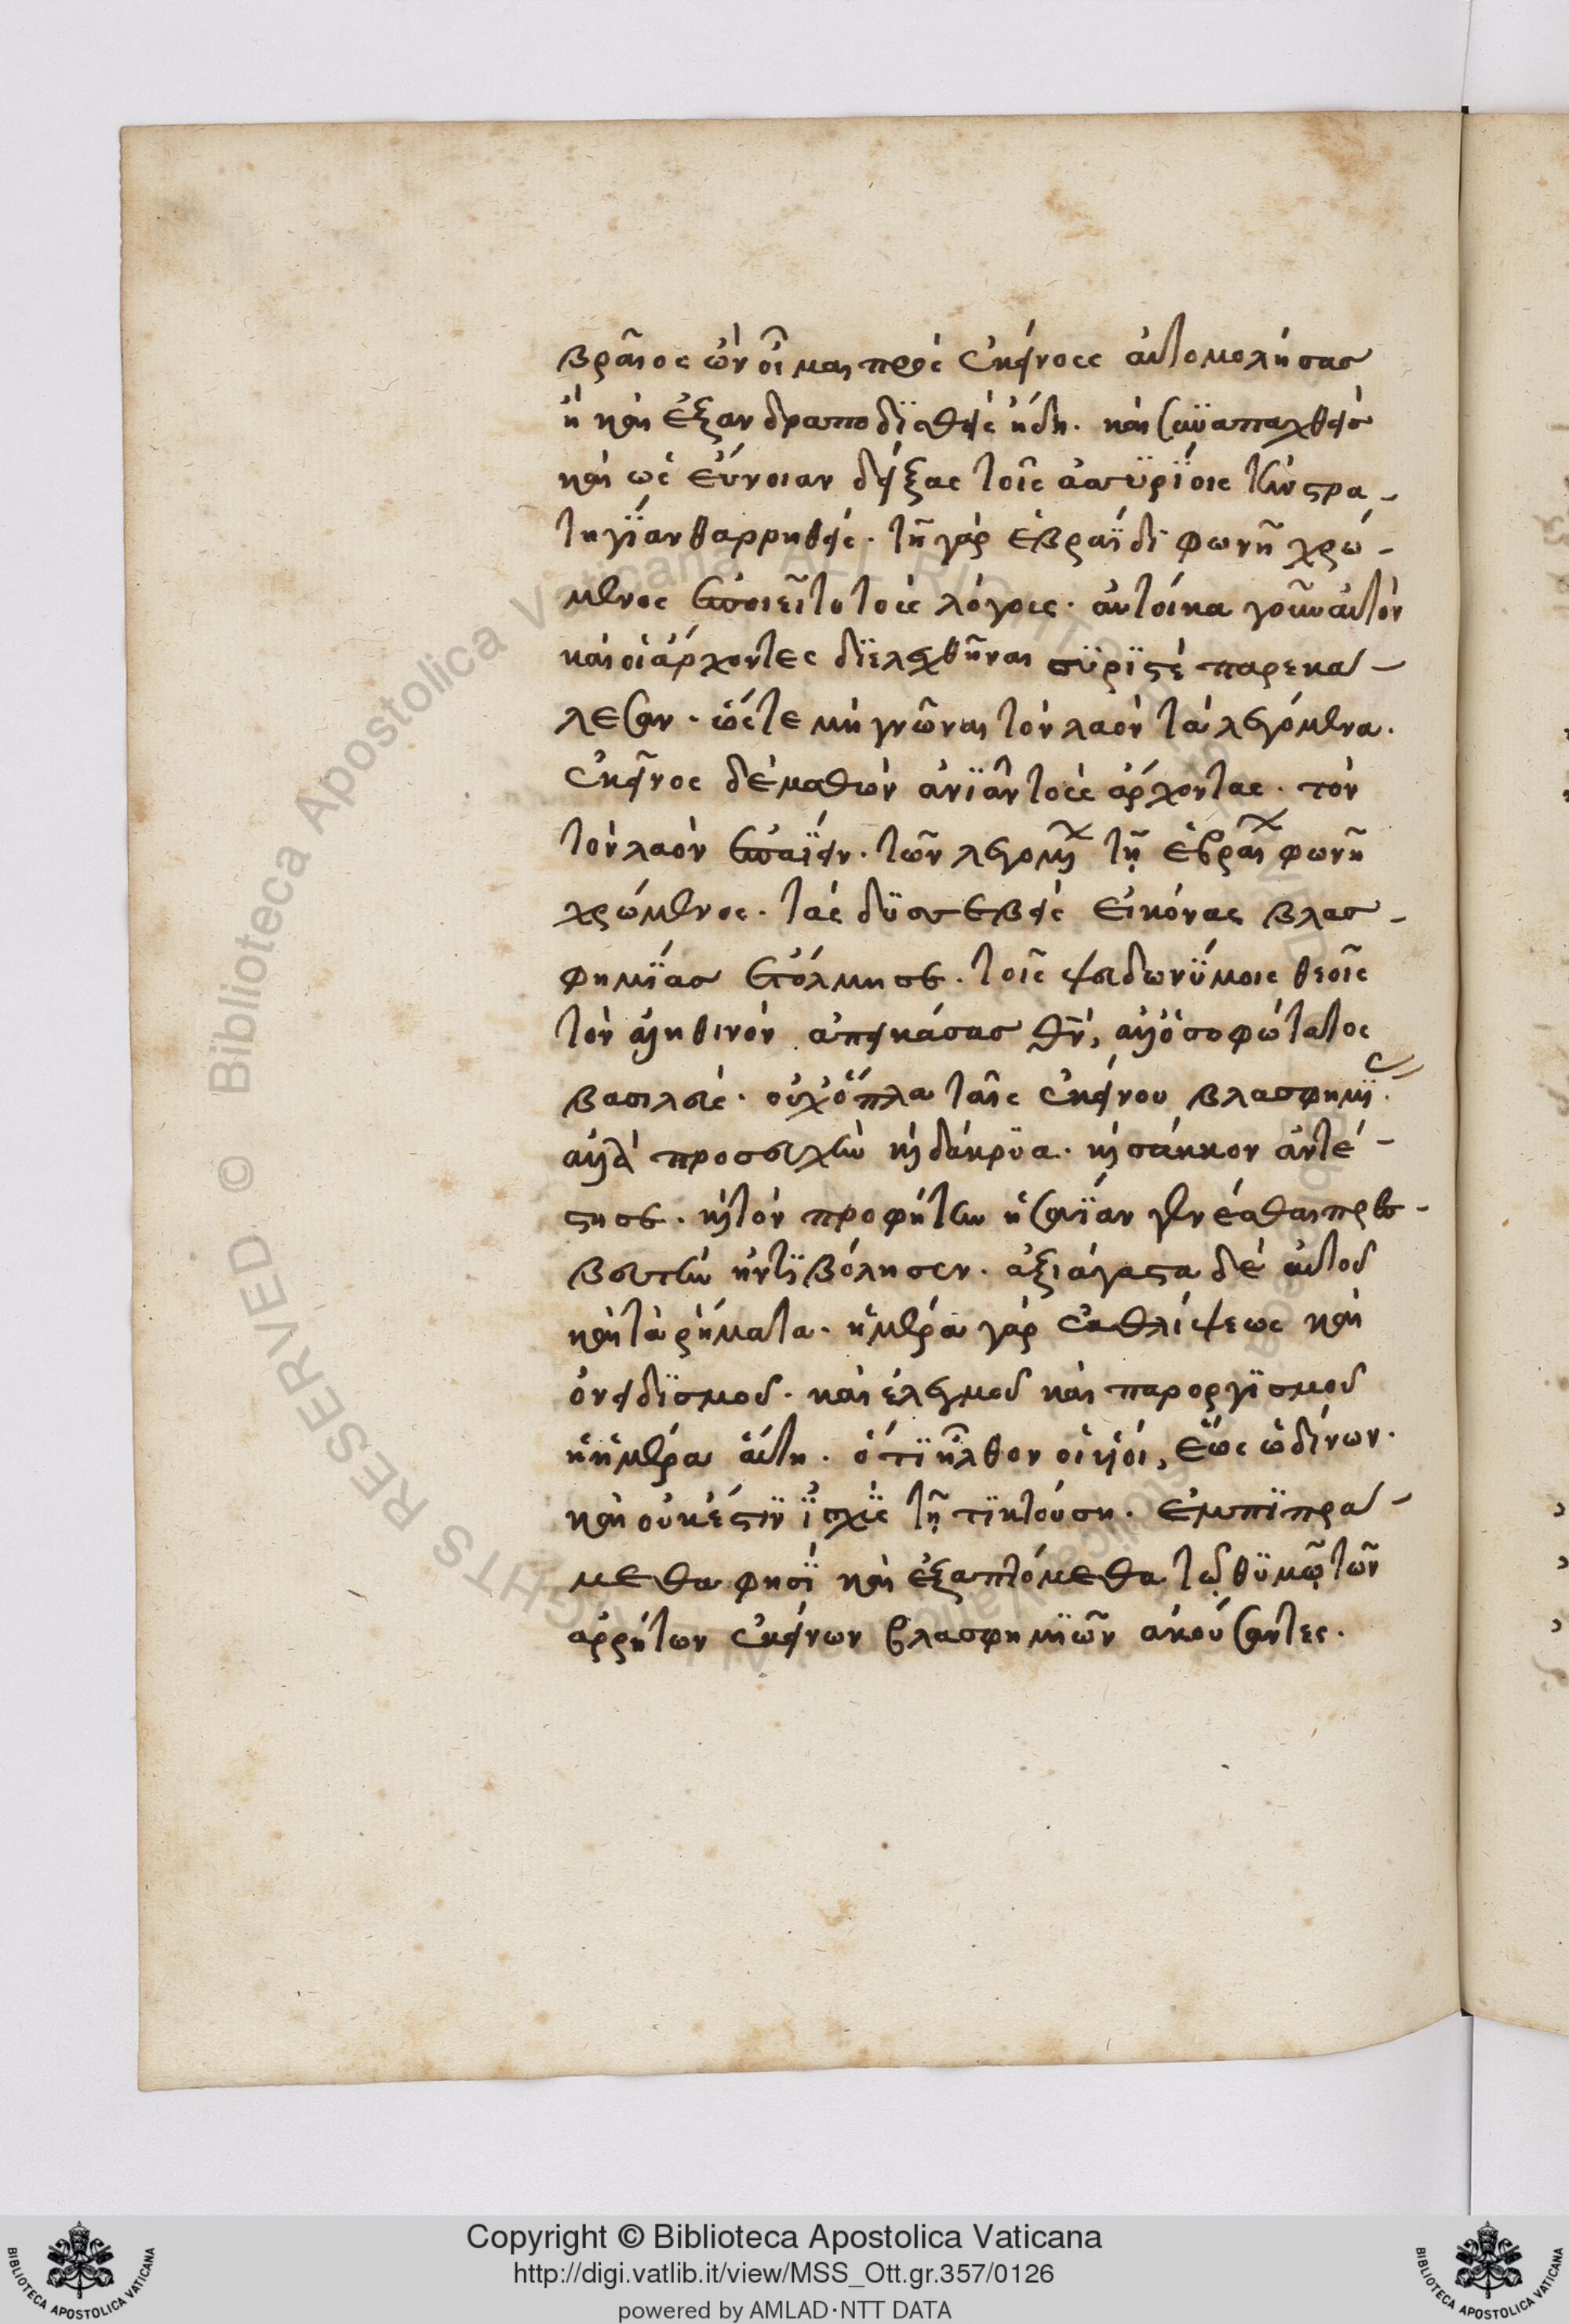 βραῖος ὢν οἶμαι πρὸς ἐκείνους αὐτομολήσας
ἢ καὶ ἐξανδραποδισθεὶς ἤδη. καὶ συναπαχθεὶς
καὶ ὡς εὔνοιαν δείξας τοῖς ἀσσυρίοις τὴν στρα-
τηγίαν θαρρηθείς. τῇ γὰρ ἑβραΐδι φωνῇ χρώ-
μενος ἐποιεῖτο τοὺς λόγους. αὐτίκα γοῦν αὐτὸν
καὶ οἱ ἄρχοντες διελεχθῆναι συριστὶ παρεκά-
λεσαν. ὥστε μὴ γνῶναι τὸν λαὸν τὰ λεγόμενα.
ἐκεῖνος δὲ μαθὼν ἀνιᾶν τοὺς ἄρχοντας. τὸν
τὸν λαὸν ἐπαΐειν. τῶν λεγομένων τῇ ἑβραΐων φωνῇ
χρώμενος. τὰς δυσσεβεῖς εἰκόνας βλασ-
φημίας ἐτόλμησε. τοῖς ψευδωνύμοις θεοῖς
τὸν ἀληθινὸν ἀπεικάσας θν, ἀλλ' ὁ σοφώτατος
βασιλεύς. οὐχ ὅπλα ταῖς ἐκείνου βλασφημίαις.
ἀλλὰ προσευχὴν καὶ δάκρυα. καὶ σάκκον ἀντέ-
στησε. καὶ τὸν προφήτην ἡσαΐαν γενέσθαι πρεσ-
βευτὴν ἠντιβόλησεν. ἀξιάγαστα δὲ αὐτοῦ
καὶ τὰ ῥήματα. ἡμέρα γὰρ ἐκθλίψεως καὶ
ὀνειδισμοῦ. καὶ ἐλεγμοῦ καὶ παροργισμοῦ
ἡ ἡμέρα αὕτη. ὅτι ἦλθον οἱ υἱοί, ἕως ὠδίνων.
καὶ οὐκ ἔστιν ἰσχὺς τῇ τικτούσῃ. ἐμπιπρά-
μεθα φησὶ καὶ ἐξαπτόμεθα τῷ θυμῷ τῶν
ἀρρήτων ἐκείνων βλασφημιῶν ἀκούσαντες.
Copyright © Biblioteca Apostolica Vaticana
http://digi.vatlib.it/view/MSS_Ott.gr.357/0126
powered by AMLAD·NTT DATA